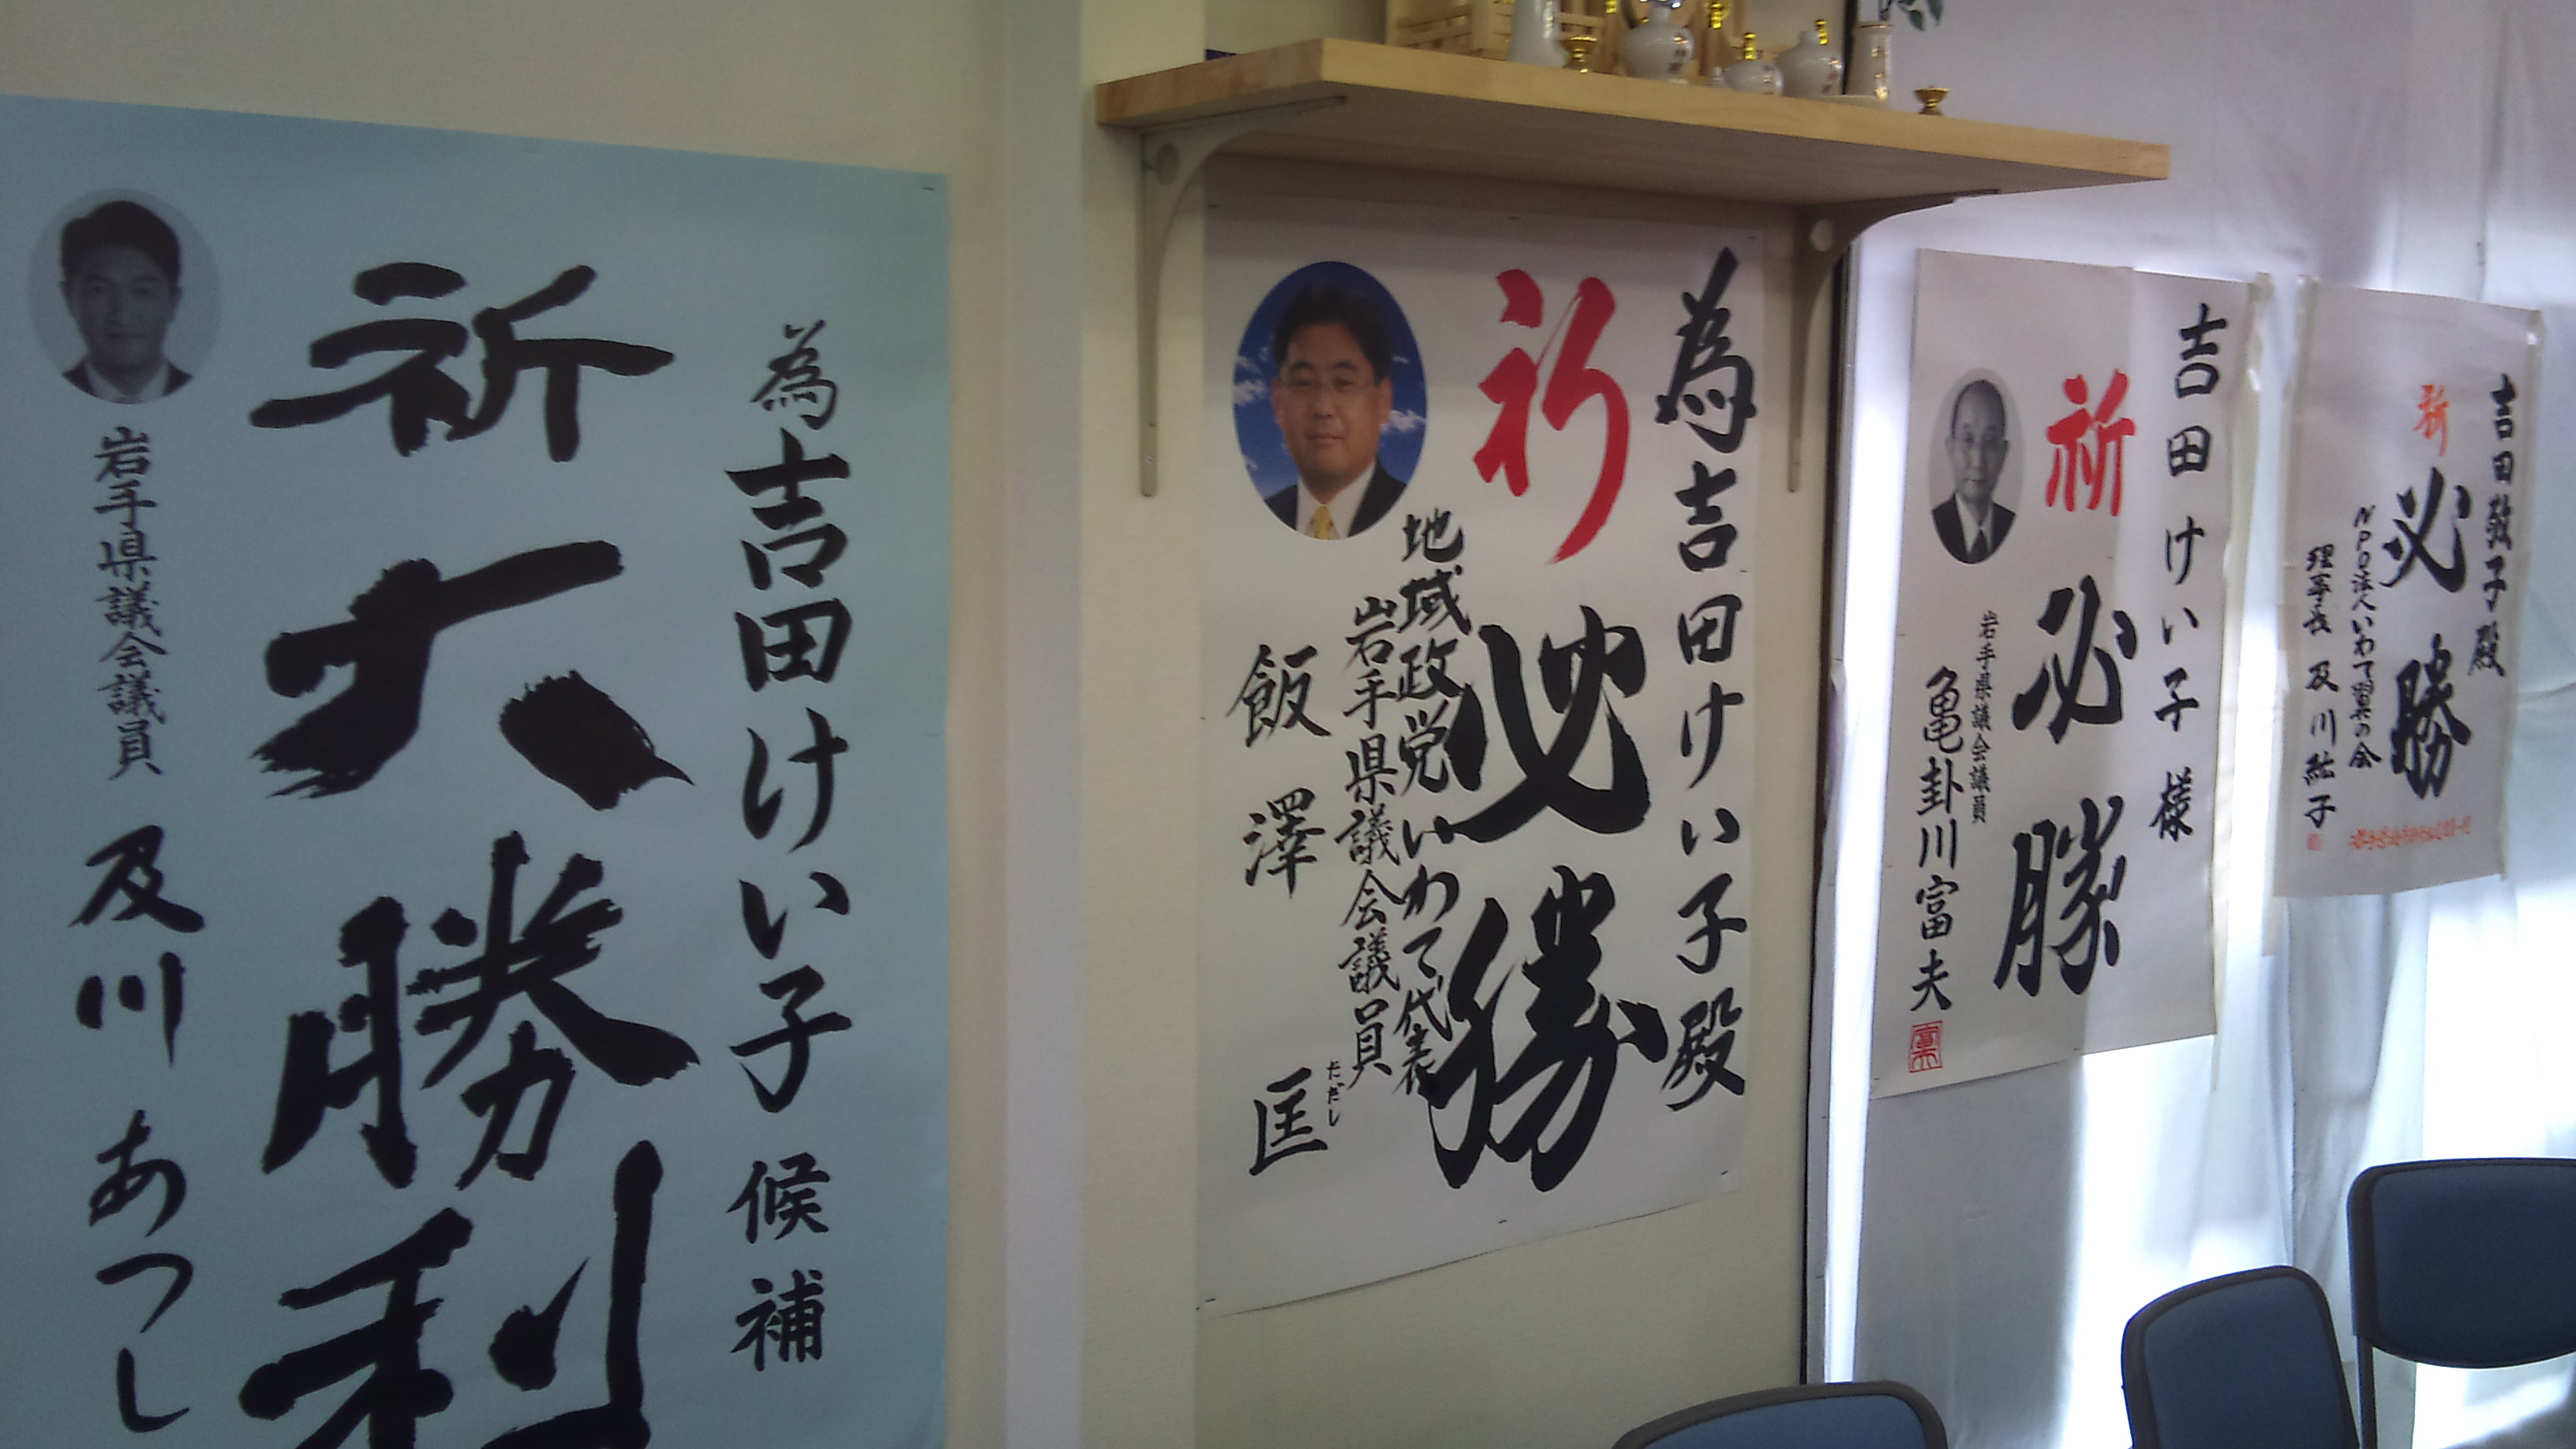 為吉田けい子候補
祈大勝利
岩手県議会議員
及川あつし
為吉田けい子殿
祈必勝
地域政党いわて代表
岩手県議会議員
飯澤匡
ただし
吉田けい子様
祈必勝
岩手県議会議員
亀卦川富夫
吉田敬子殿
祈必勝
NPO法人いわて翼の会
理事長 及川紘子